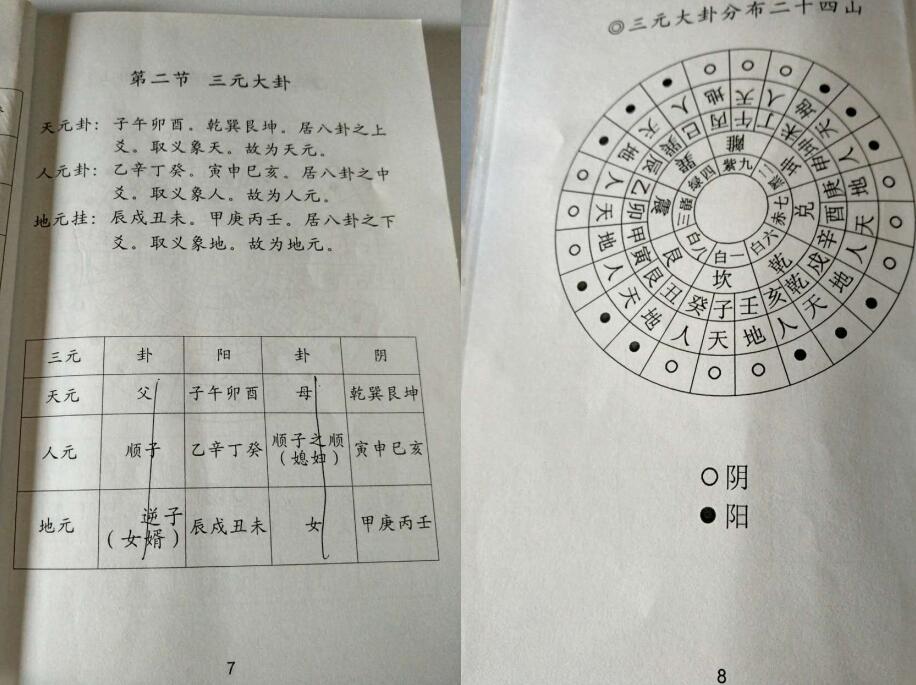 第二节 三元大卦
天元卦：子午卯酉。乾巽艮坤。居八卦之上
爻。取义象天。故为天元。
人元卦：乙辛丁癸。寅申巳亥。居八卦之中
爻。取义象人。故为人元。
地元挂：辰戌丑未。甲庚丙壬。居八卦之下
爻。取义象地。故为地元。
三元 卦 阳 卦 阴
天元 父 子午卯酉 母 乾巽艮坤
人元 顺子 乙辛丁癸 顺子之顺（媳妇） 寅申巳亥
地元 逆子（女婿） 辰戌丑未 女 甲庚丙壬
7
◎三元大卦分布二十四山
地 天 人 地 天 人 地 天 人 地 天 人 地 天 人 地 天 人 地 天 人 地 天 人
丙 午 丁 未 坤 申 庚 酉 辛 戌 乾 亥 壬 子 癸 丑 艮 寅 甲 卯 乙 辰 巽 巳
離 坤 兑 乾 坎 艮 震 巽
紫九 二黑 七赤 六白 一白 八白 三碧 四绿
○阴
●阳
8